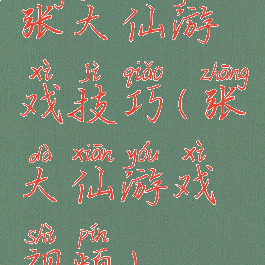 张大仙游
xì jì qiǎo zhāng
戏技巧(张
dà xiān yóu xì
大仙游戏
shì pín
视频)